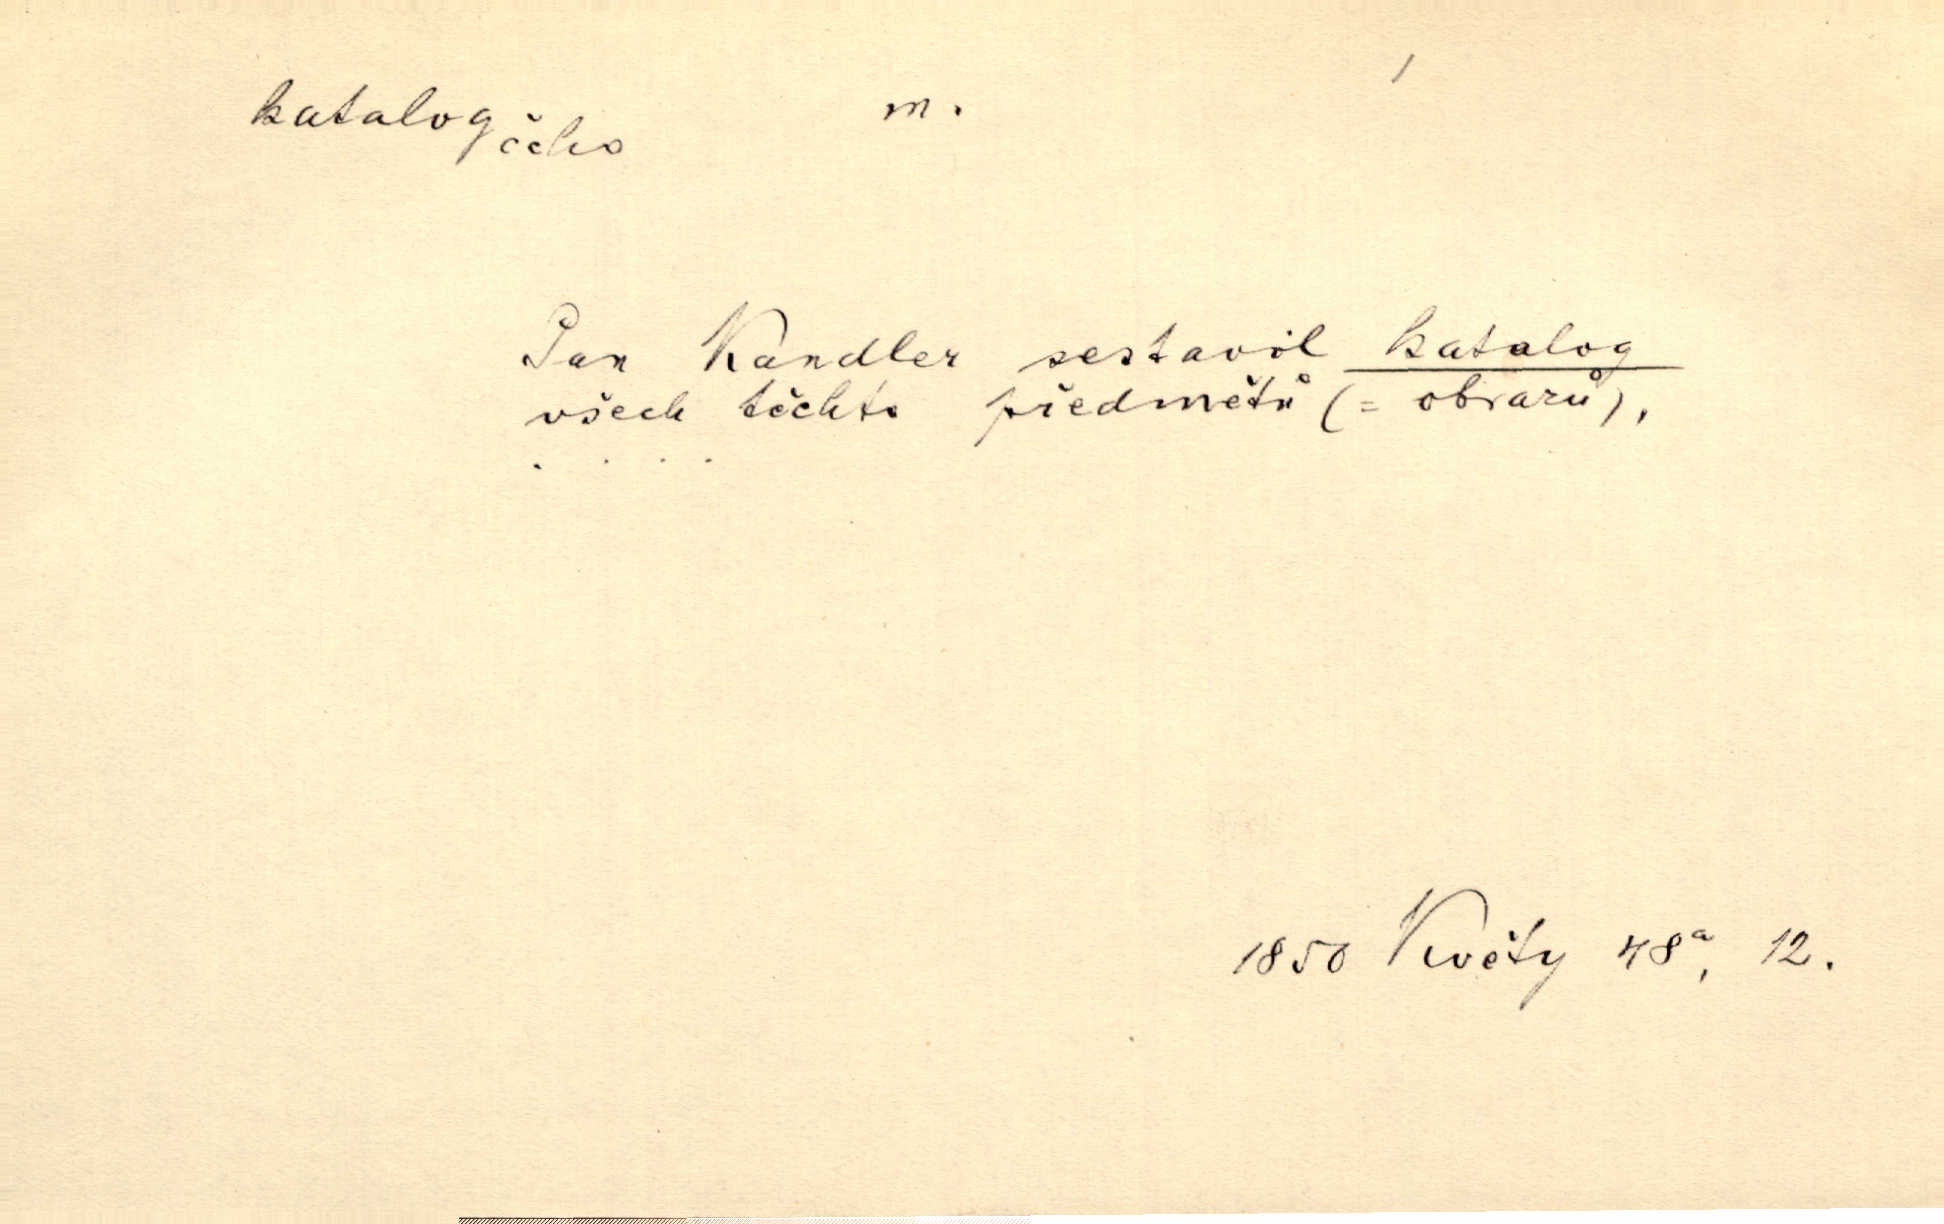 katalog čeho m.
Pan Kandler sestavil katalog
všech těchto předmětů (= obrazů),
. . . .
1850 Květy 48a, 12.